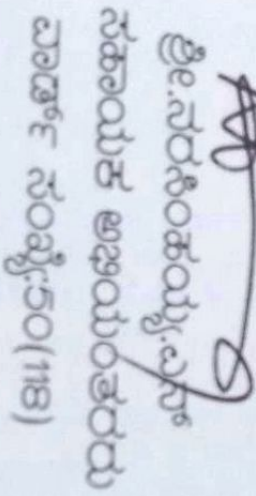 ಶ್ರೀ.ನರಸಿಂಹಯ್ಯ.ಎನ್
ಸಹಾಯಕ ಅಭಿಯಂತರರು
ವಾರ್ಡ್ ಸಂಖ್ಯೆ:50(118)